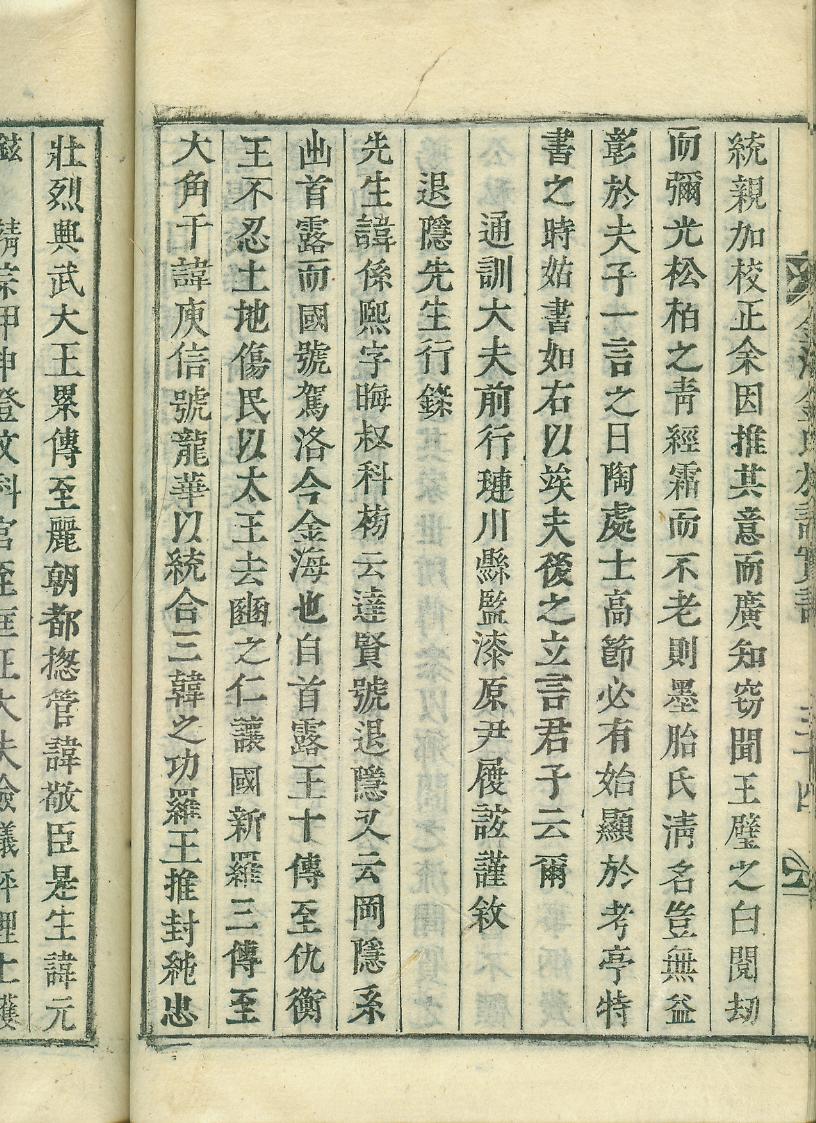 統親加校正余因推其意而廣知窃聞王璧之白閱劫
而彌光松柏之靑經霜而不老則墨胎氏淸名豈無益
彰於夫子一言之日陶處士高節必有始顯於考亭特
書之時姑書如右以竢夫後之立言君子云爾
通訓大夫前行璉川縣監漆原尹履 謹敘
退隱先生行錄
先生諱係熙字晦叔科榜云達賢號退隱又云岡隱系
出首露而國號駕洛今金海也自首露王十傳至仇衡
王不忍土地傷民以太王去豳之仁讓國新羅三傳至
大角干諱庾信號龍華以統合三韓之功羅王推封純忠
壯烈興武大王累傳至麗朝都摠管諱敬臣是生諱元